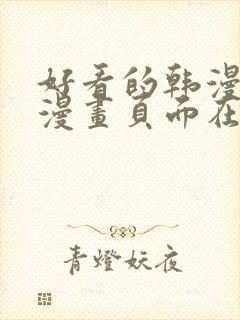 好看的韩漫
漫畫頁面在
青燈妖夜